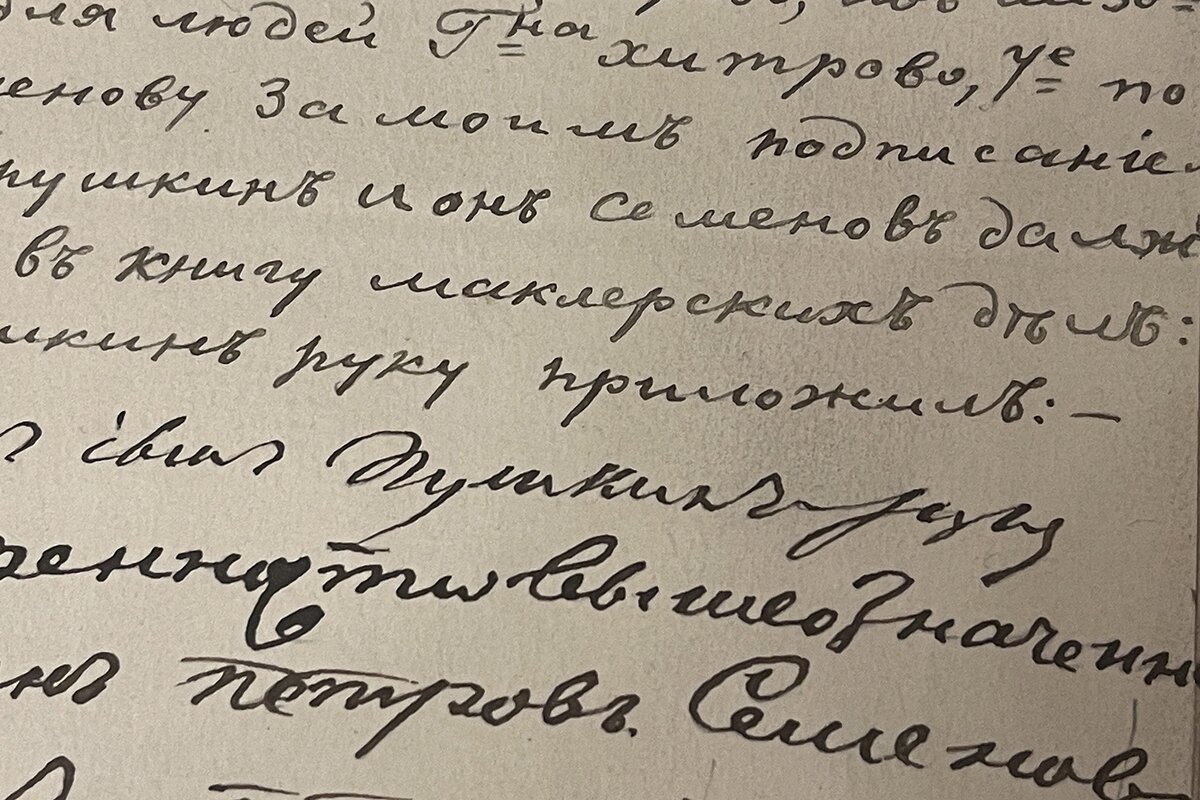 для людей Г-на хитрово, 7е по
енову За моимъ подписаніем
пушкинъ и онъ Семеновъ далж
въ книгу маклерскихъ дѣлъ:
шкинъ руку приложилъ: —
Пушкинъ руку
вышеозначенн
петровъ. Семенов